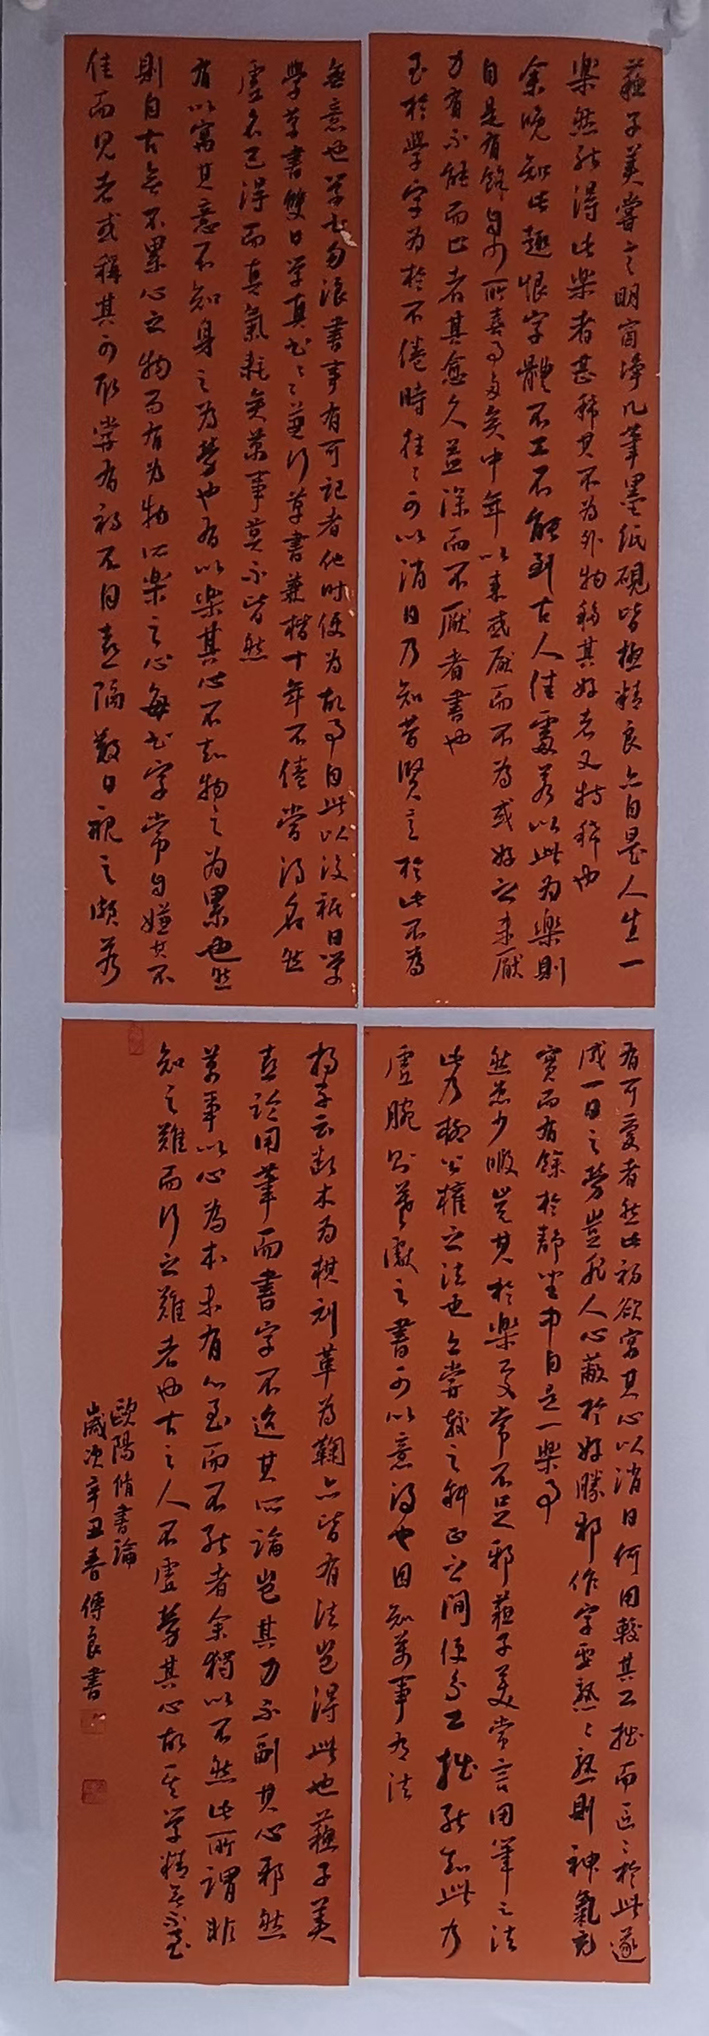 蘇子美嘗言明窗淨几筆墨紙硯皆極精良亦自是人生一
樂然能得此樂者甚稀其不為外物移其好者又特稀也
余晚知此趣恨字體不工不能到古人佳處若以此為樂則
自是有餘自少所喜事多矣中年以來或厭而不為或好之未厭
力有不能而止者其愈久益深而不厭者書也
至於學字為於不倦時往往可以消日乃知昔賢言於此不為
無意也草書勿浪書事有可記者他時便為故事自此以後祗日學
學草書雙日學真書真書兼行草書兼楷十年不倦當得名然
虛名已得而真氣耗矣萬事莫不皆然
有以寓其意不知身之為勞也有以樂其心不知物之為累也然
則自古無不累心之物而有為物所樂之心每書字常自嫌其不
佳而見者或稱其可取嘗有初不自喜隔數日視之頗若
有可愛者然此初欲寓其心以消日何用較其工拙而區區於此遂
成一日之勞豈非人心蔽於好勝邪作字要熟熟則神氣完
實而有餘於靜坐中自是一樂事
然患少暇豈其於樂處常不足邪蘇子美常言用筆之法
此乃柳公權之法也亦嘗較之斜正之間便分工拙能知此乃
虛腕則羲獻之書可以意得也因知萬事有法
揚子云斷木為棋刓革為鞠亦皆有法豈得此也蘇子美
喜論用筆而書字不迨其所論豈其力不副其心邪然
萬事以心為本未有心至而不能者余獨以不然此所謂非
知之難而行之難者也古之人不虛勞其心故其學精無不至
歐陽脩書論
歲次辛丑春傳良書